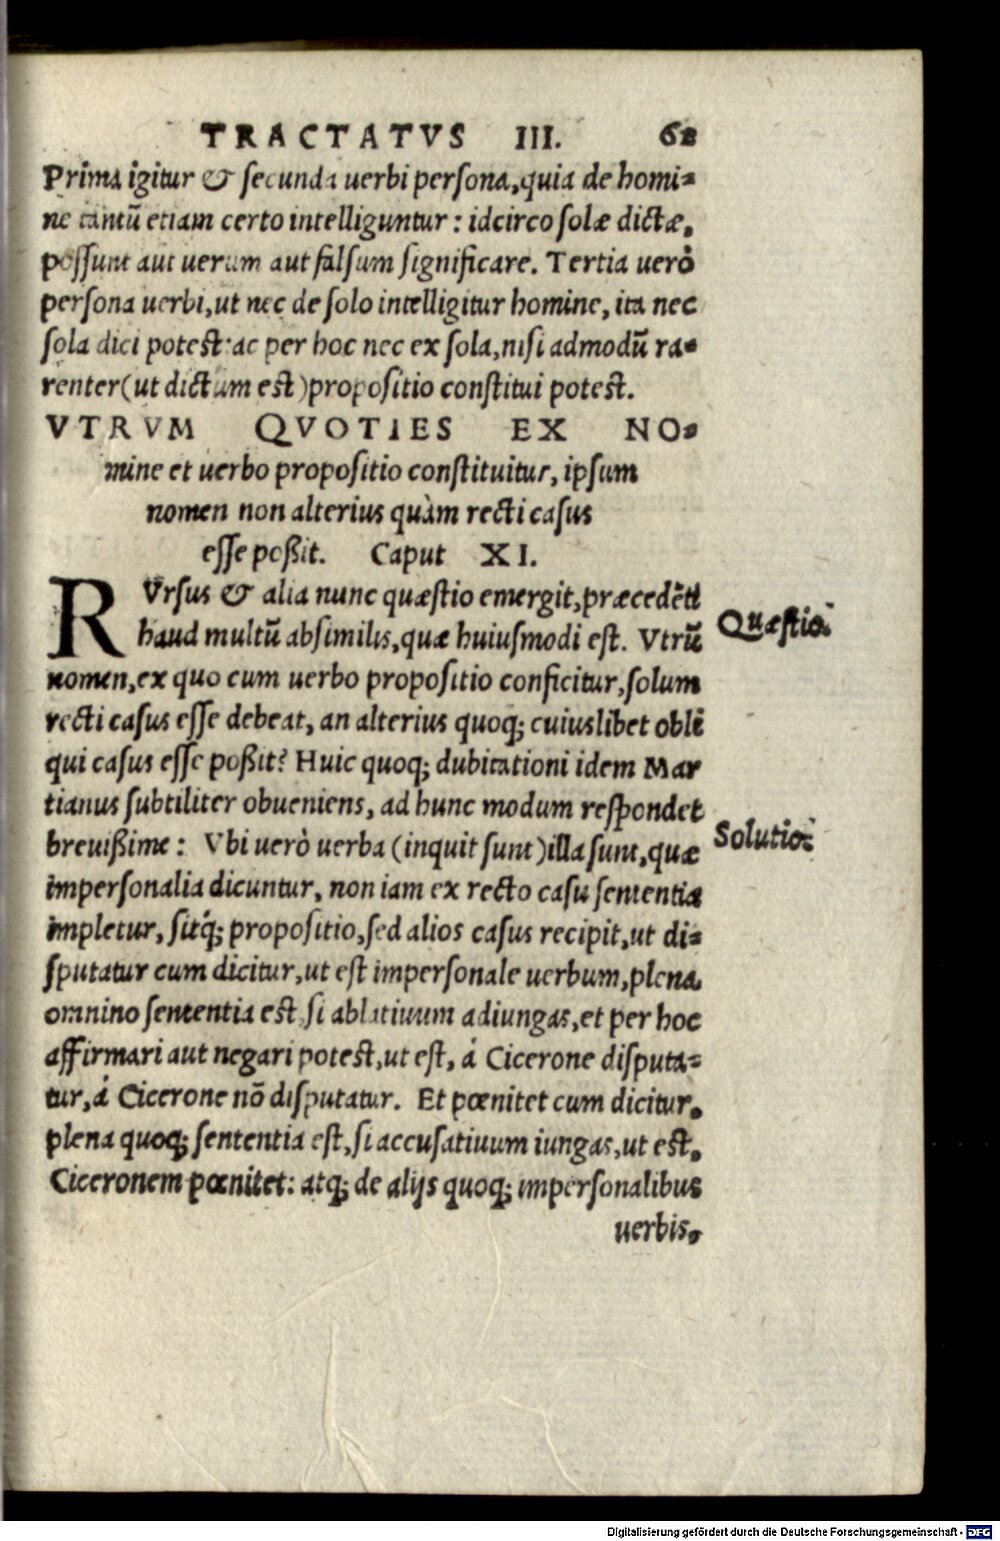 TRACTATVS III. 62
Prima igitur & secunda uerbi persona, quia de homi-
ne tantũ etiam certo intelliguntur: idcirco solæ dictæ,
possunt aut uerum aut falsum significare. Tertia uerò
persona uerbi, ut nec de solo intelligitur homine, ita nec
sola dici potest: ac per hoc nec ex sola, nisi admodũ ra-
renter (ut dictum est) propositio constitui potest.
VTRVM QVOTIES EX NO-
mine et uerbo propositio constituitur, ipsum
nomen non alterius quàm recti casus
esse poßit. Caput XI.
RVrsus & alia nunc quæstio emergit, præcedẽti
haud multũ absimilis, quæ huiusmodi est. Vtrũ
Quæstio.
nomen, ex quo cum uerbo propositio conficitur, solum
recti casus esse debeat, an alterius quoq; cuiuslibet obli
qui casus esse poßit? Huic quoq; dubitationi idem Mar
tianus subtiliter obueniens, ad hunc modum respondet
breuißime: Vbi uerò uerba (inquit sunt) illa sunt, quæ
Solutio.
impersonalia dicuntur, non iam ex recto casu sententia
impletur, sitq́; propositio, sed alios casus recipit, ut di-
sputatur cum dicitur, ut est impersonale uerbum, plena
omnino sententia est, si ablatiuum adiungas, et per hoc
affirmari aut negari potest, ut est, á Cicerone disputa-
tur, á Cicerone nõ disputatur. Et pœnitet cum dicitur,
plena quoq; sententia est, si accusatiuum iungas, ut est,
Ciceronem pœnitet: atq; de alijs quoq; impersonalibus
uerbis,
Digitalisierung gefördert durch die Deutsche Forschungsgemeinschaft - DFG